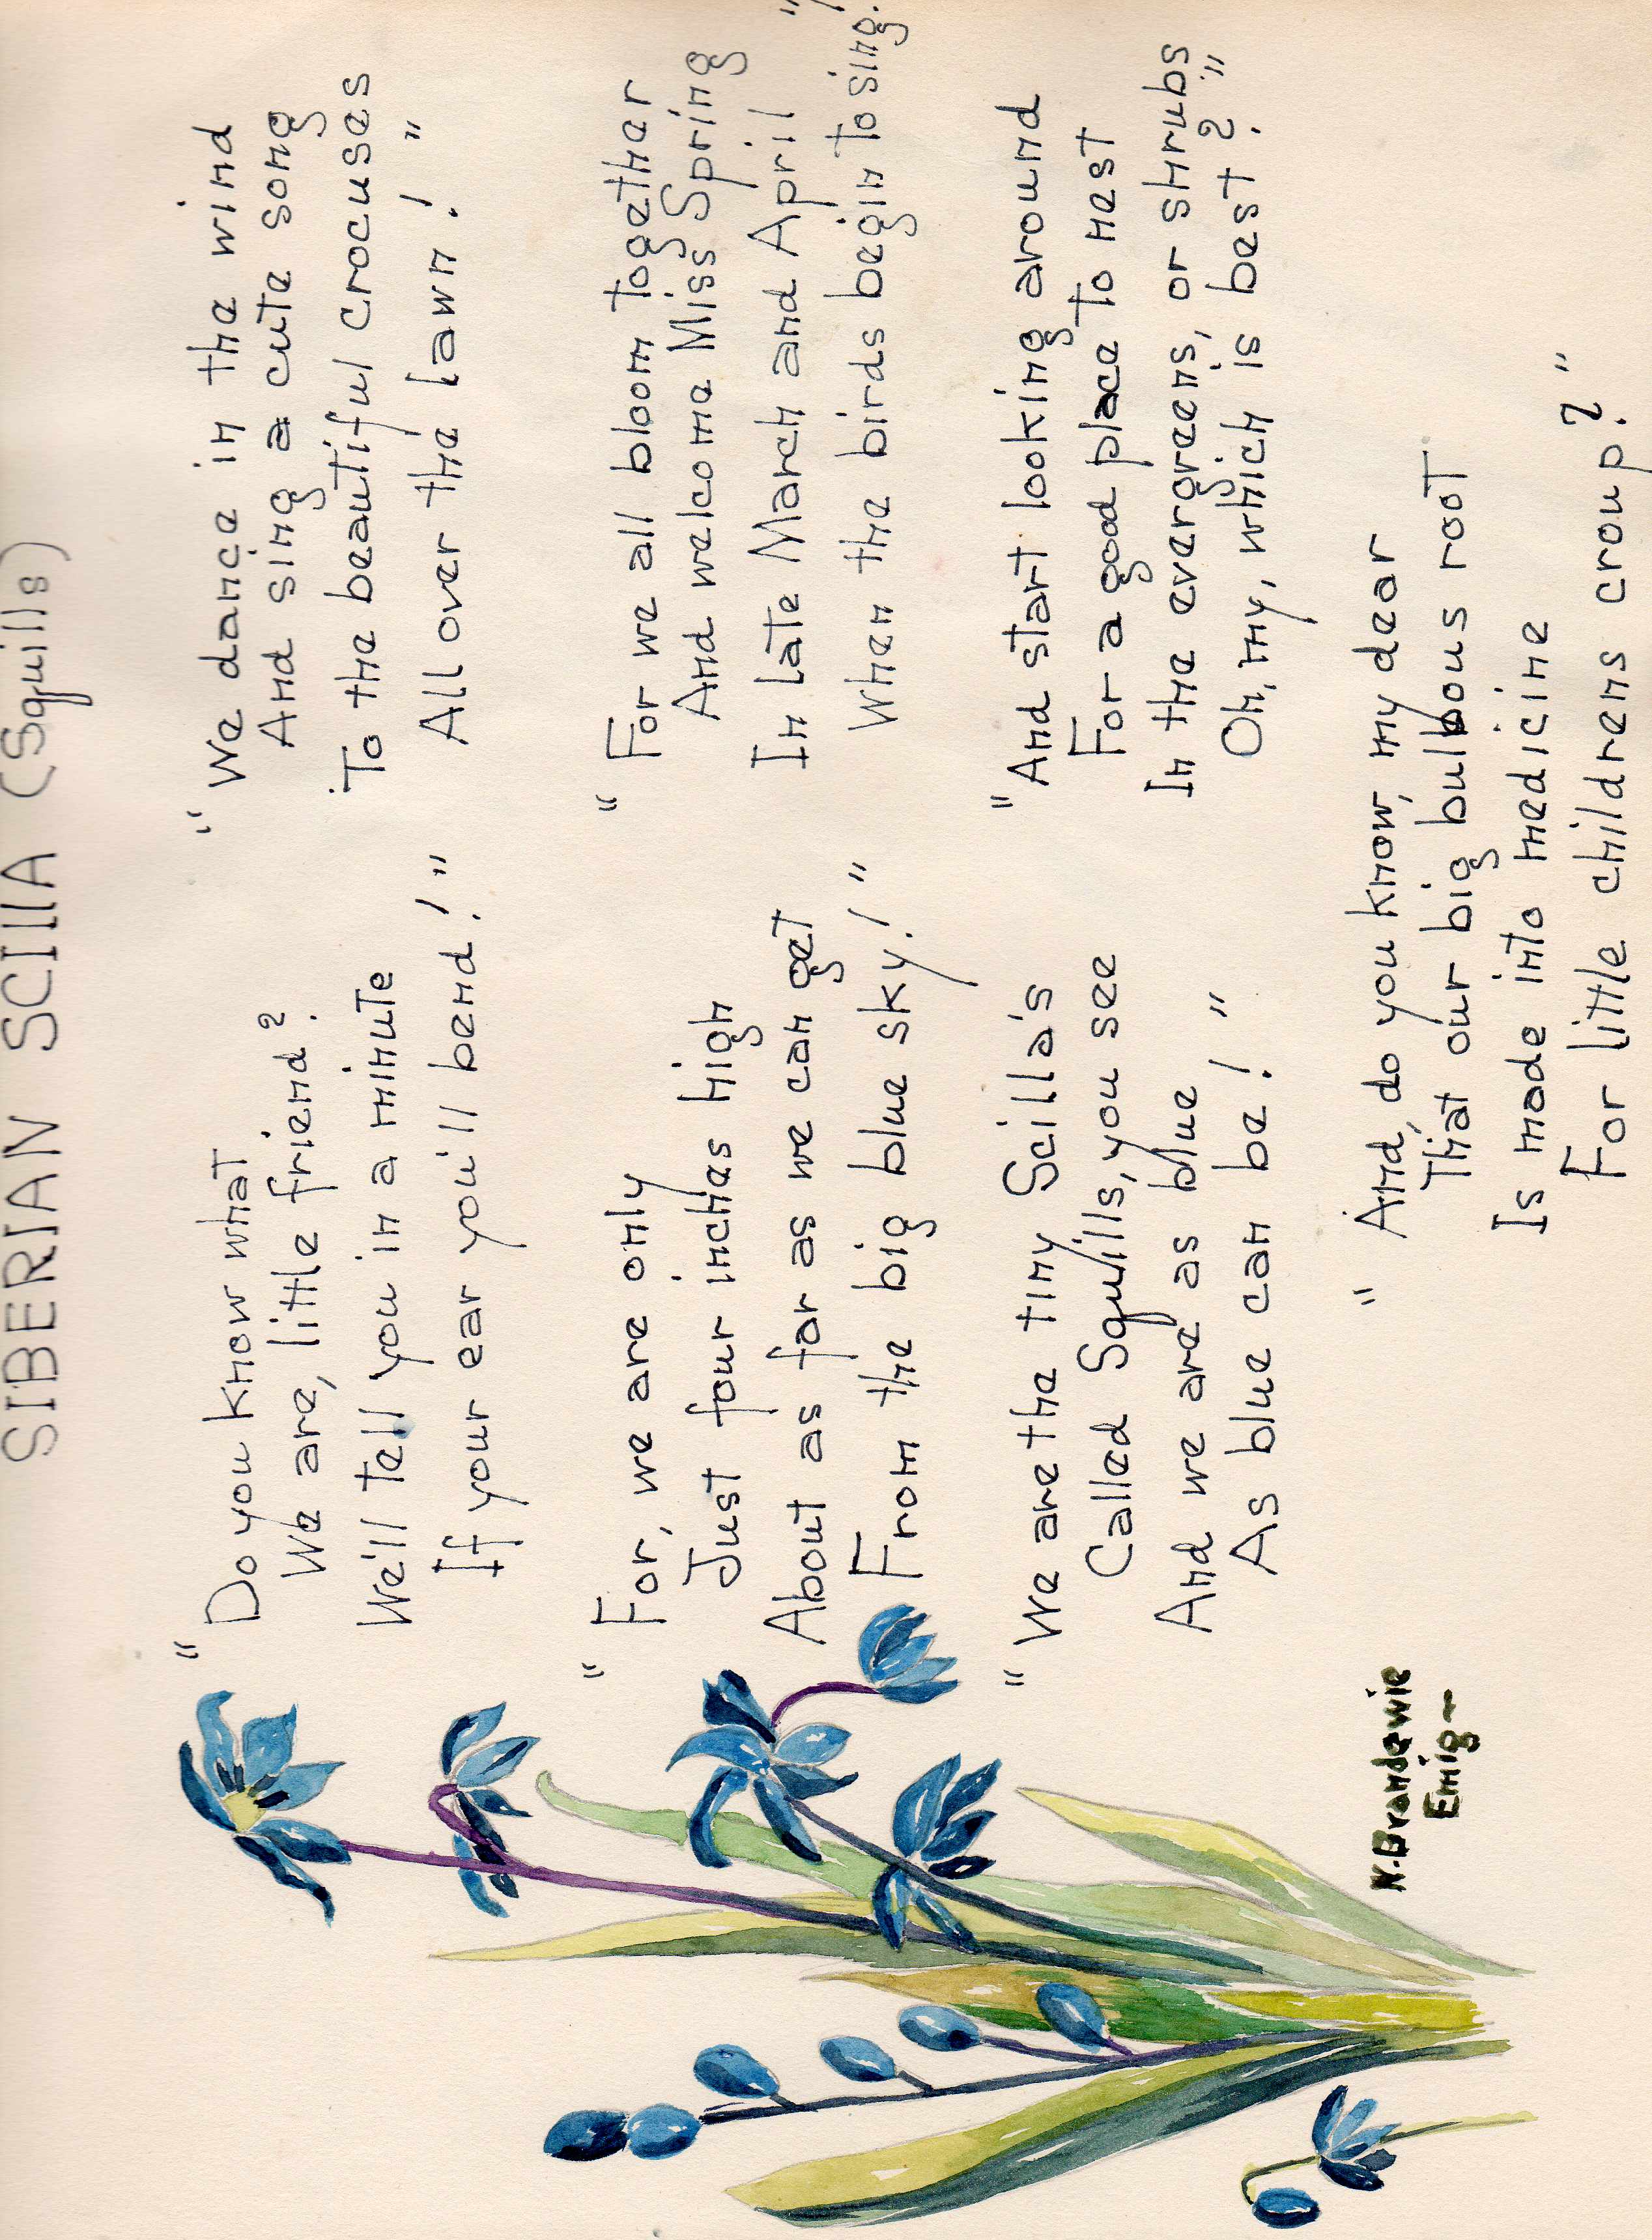 SIBERIAN SCIllA (Squills)
" Do you know what
We are, little friend?
We'll tell you in a minute
If your ear you'll bend!"
" For, we are only
Just four inches high
About as far as we can get
From the big blue sky!"
" We are the tiny Scilla's
Called Squills, you see
And we are as blue
As blue can be! "
" We dance in the wind
And sing a cute song
To the beautiful crocuses
All over the lawn! "
" For we all bloom together
And welcome Miss Spring
In late March and April
When the birds begin to sing."
" And start looking around
For a good place to nest
In the evergreens, or shrubs
Oh, my, which is best? "
" And, do you know, my dear
That our big bulbous root
Is made into medicine
For little childrens croup? "
N. Brandewie
Emig~